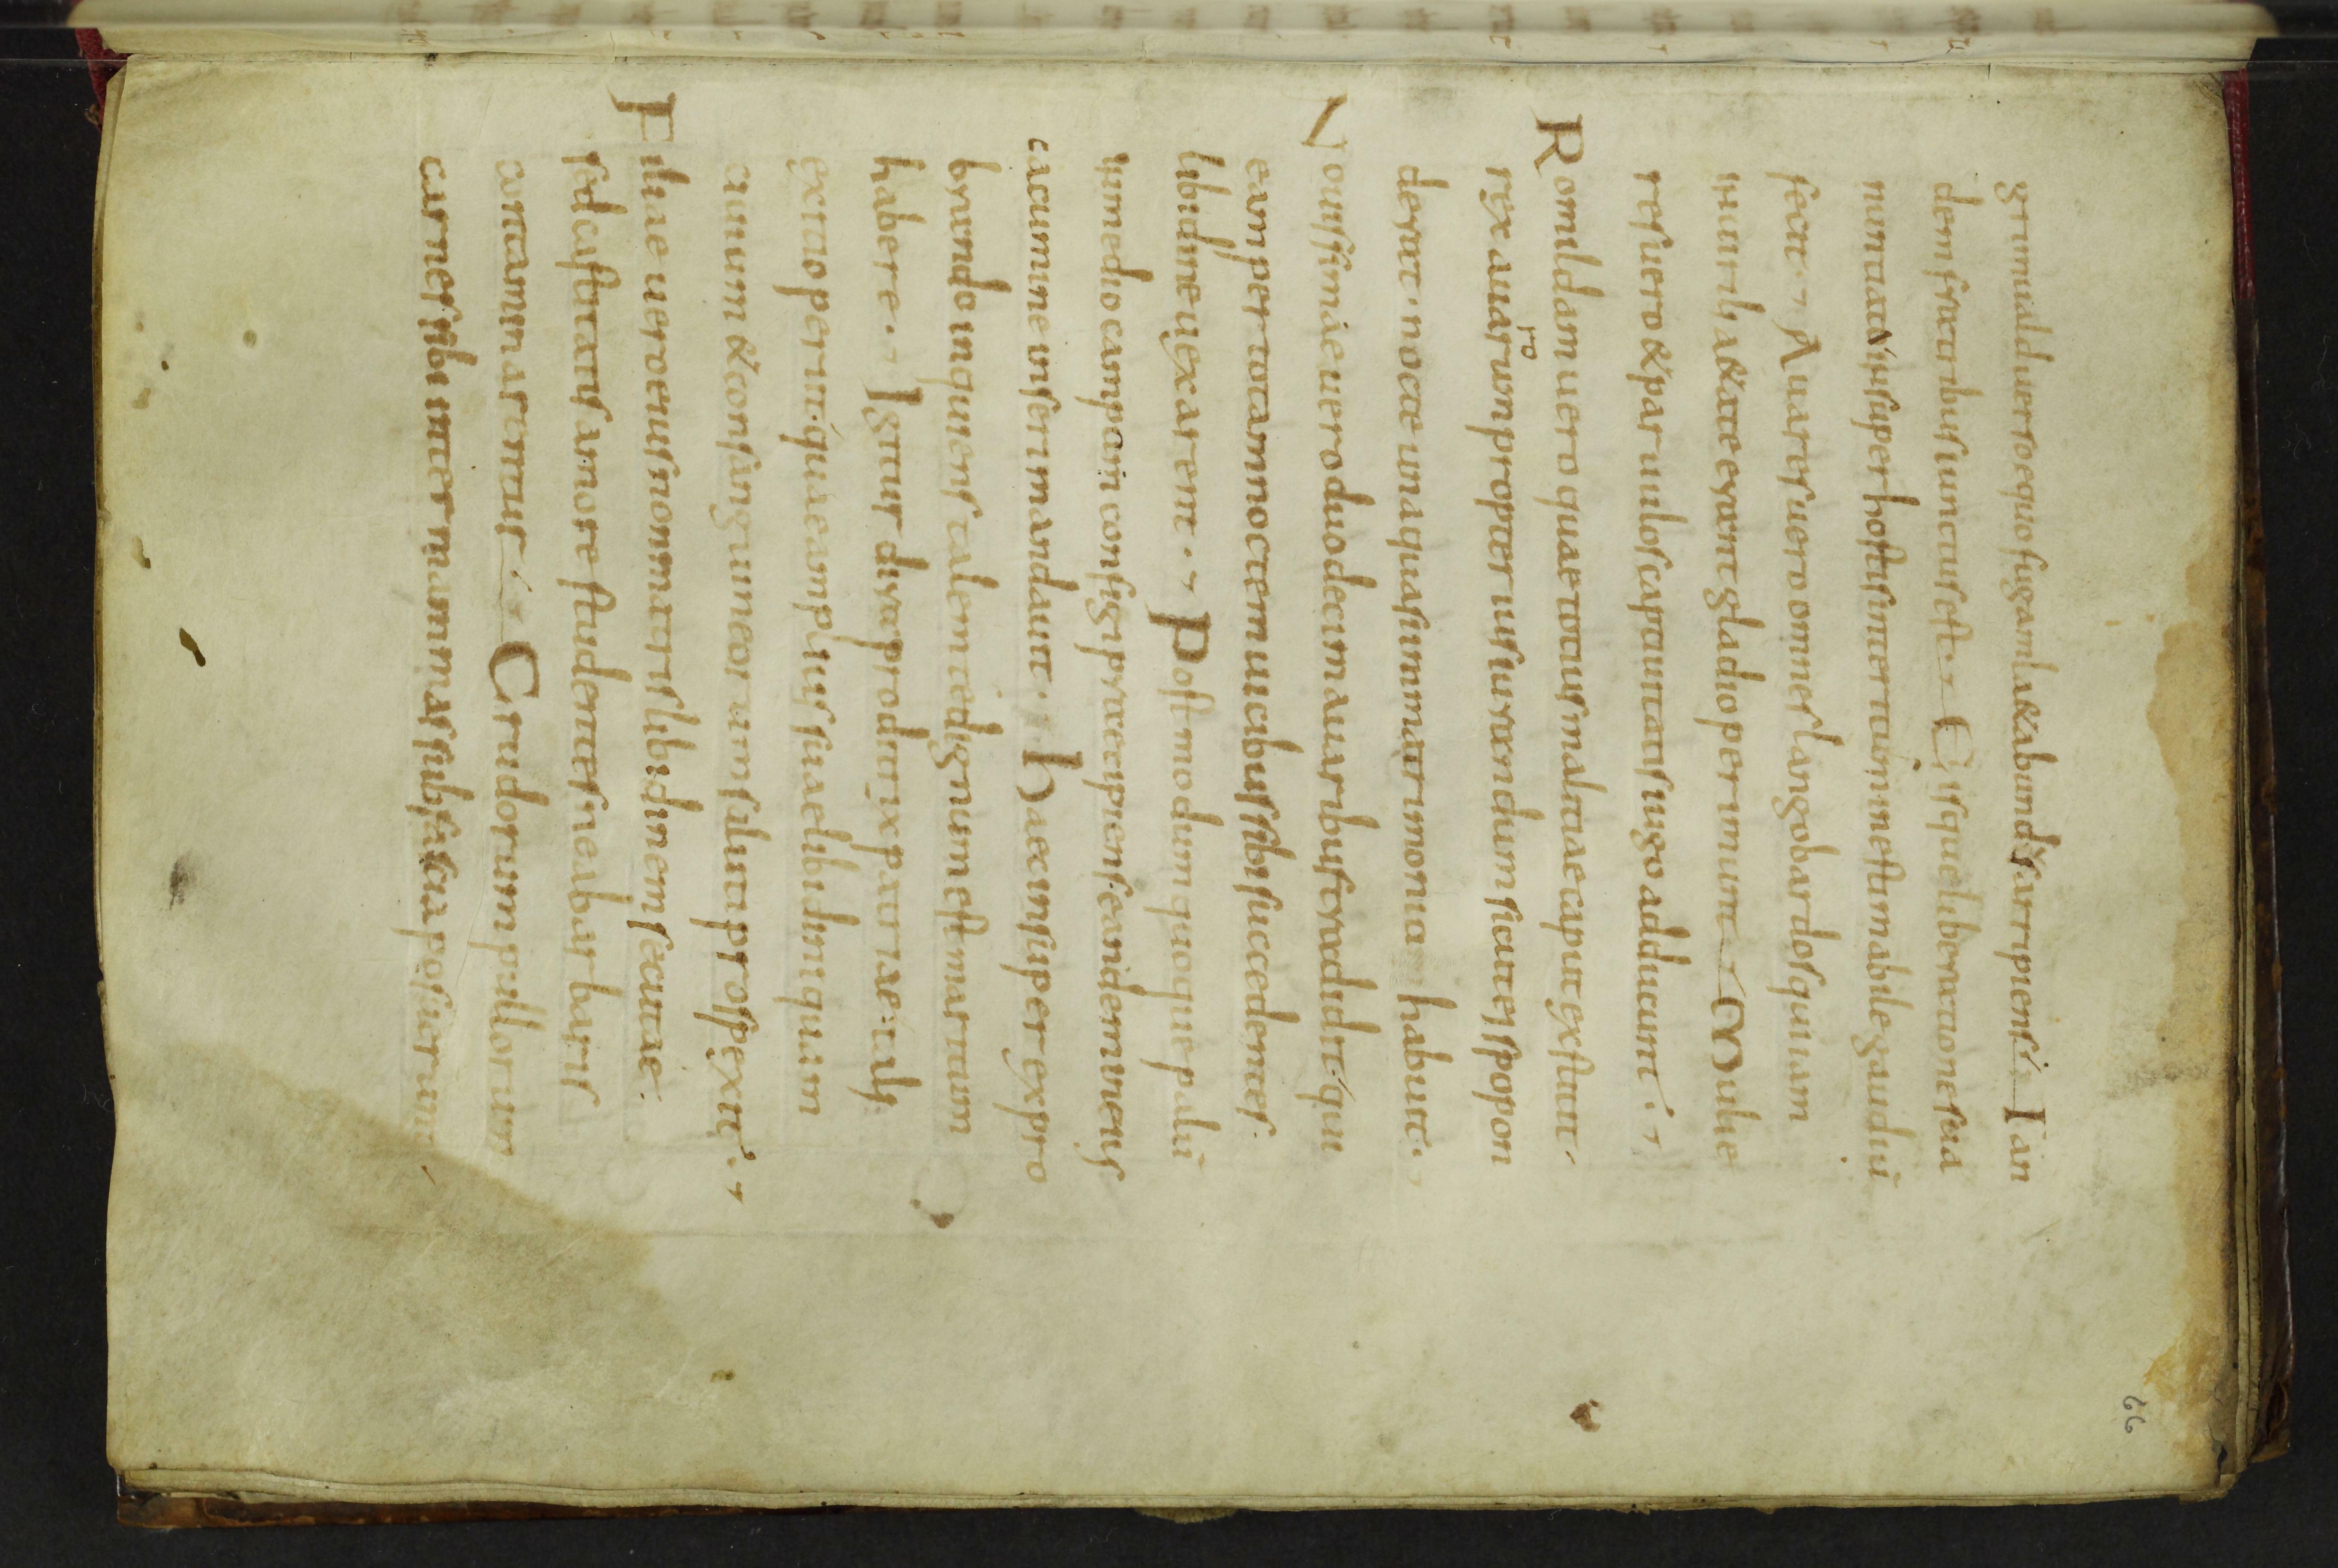 grimuald uerso equo fugam la&abund; arripiens; Ian
dem fratribus iunctus est; Eisque liberatione sua
nuntiata insuper hostis interitum inestimabile gaudiũ
fecit; Auares uero omnes langobardos qui iam
in uirili a&ate erant gladio perimunt; Mulie
res uero & paruulos captiuitatis iugo adducunt;
Romildam uero quae totius malitiae caput exstitit.
ro
rex auarum propter iusiurandum sicut ei spopon
derat. nocte una quasi in matrimonio habuit;
Nouissimae uero duodecim auaribus tradidit. qui
eam per totam noctem uicibus sibi succedentes.
libidine uexarent; Postmodum quoque palũ
in medio campo configi praecipiens. eandem in eius
cacumine inseri mandauit; Haec insuper expro
brando inquiens. talem te dignum est maritum
habere; Igitur dira proditrix patriae. tali
exitio periit. quae amplius suae libidini quam
ciuium & consanguineorum saluti prospexit;
Filiae uero eius non matris libidinem secutae.
sed castitatis amore studentes ne a barbaris
contaminarentur; Crudorum pullorum
carnes sibi inter mammas sub fascia posuerunt;
66